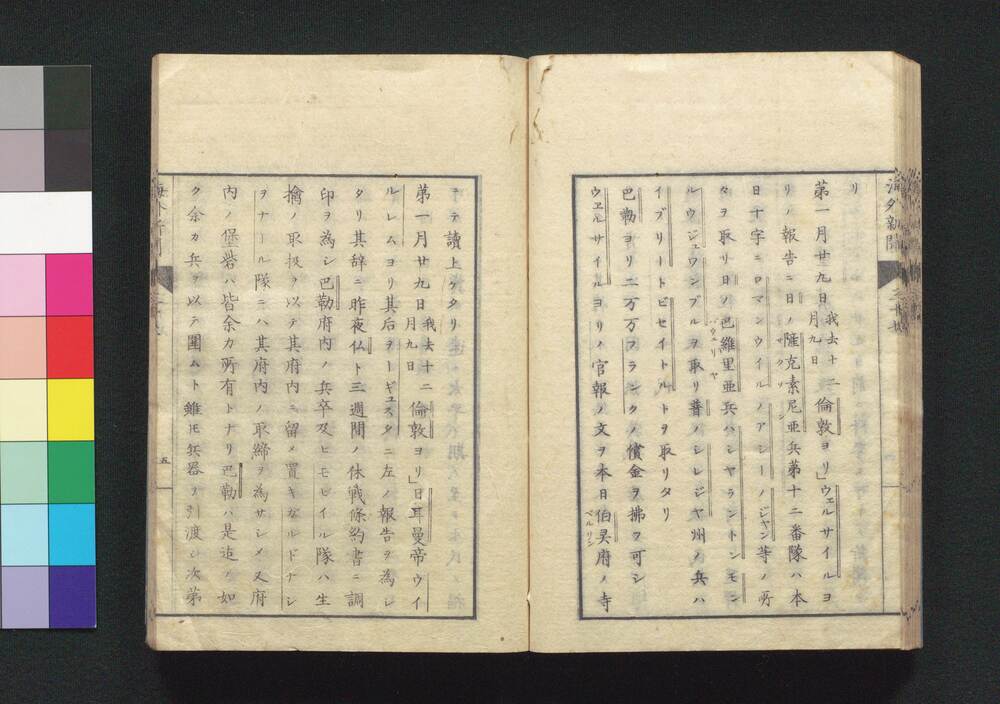 海外新聞
リ
第一月廿九日我去十二月九日倫敦ヨリ」ウェルサイルヨ
リノ報告ニ日ノ薩克索尼亜兵第十二番隊ハ本
日十字ニロマンウイルノアシーノジヤン等ノ所
々ヲ取リ日ノ巴維里亜兵ハシヤラントンモン
ルウジュワンブルヲ取リ普ノシレジヤ州ノ兵ハ
イブリートビセイトルトヲ取リタリ
巴勒ヨリ二万万フランクノ償金ヲ拂フ可シ
ウェルサイルヨリノ官報ノ文ヲ本日伯灵府ノ寺
ニテ讀上ケタリ
第一月廿九日我去十二月九日倫敦ヨリ」日耳曼帝ウイ
ルレムヨリ其后ヲーギュスタニ左ノ報告ヲ為シ
タリ其辞ニ昨夜仏ト三週間ノ休戦條約書ニ調
印ヲ為シ巴勒府内ノ兵卒及ヒモビイル隊ハ生
擒ノ取扱ヲ以テ其府内ニ留メ置キガルドナシ
ヲナール隊ニハ其府内ノ取締ヲ為サシメ又府
内ノ堡砦ハ皆余カ所有トナリ巴勒ハ是迄ノ如
ク余カ兵ヲ以テ圍ムト雖𪜈兵器ヲ引渡シ次第
海外新聞
五